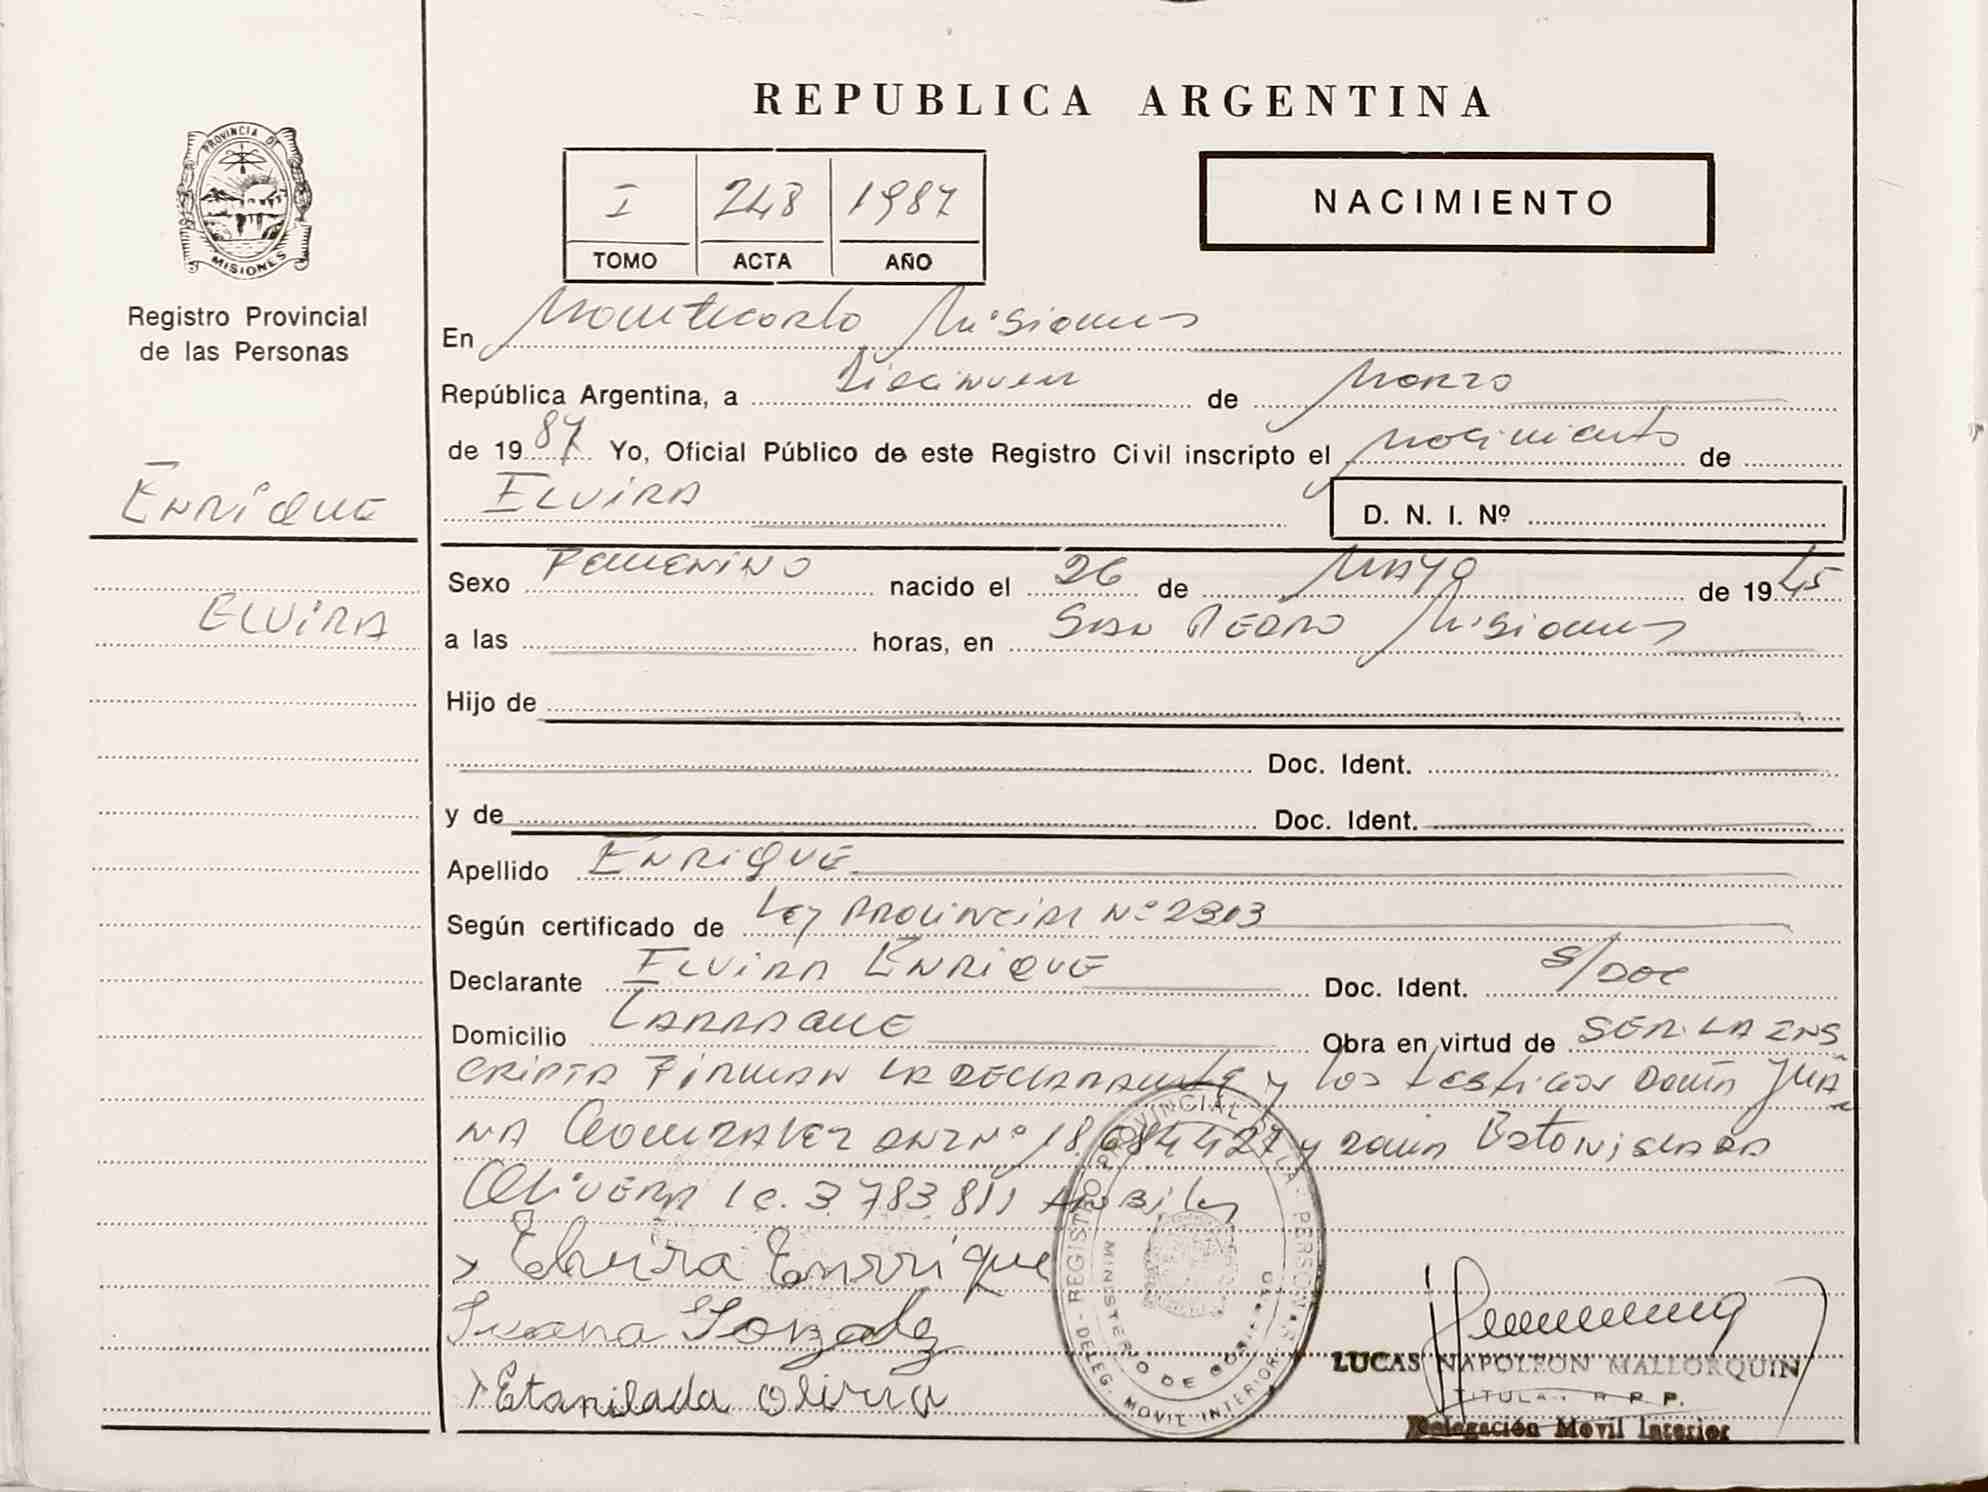 REPUBLICA ARGENTINA
PROVINCIA DE
MISIONES
Registro Provincial
de las Personas
I 248 1987
TOMO ACTA AÑO
NACIMIENTO
En Montecarlo Misiones
República Argentina, a Diecinueve de Marzo
de 1987 Yo, Oficial Público de este Registro Civil inscripto el nacimiento de
Elvira D. N. I. Nº
Enrique
Elvira
Sexo Femenino nacido el 26 de Mayo de 1945
a las horas, en San Pedro Misiones
Hijo de
Doc. Ident.
y de Doc. Ident.
Apellido Enrique
Según certificado de Ley Provincial Nº 2303
Declarante Elvira Enrique Doc. Ident. S/Doc
Domicilio Tarraque Obra en virtud de ser la ins
cripta Firman la declarante y los testigos Doña Jua
na Gonzalez DNI Nº 18.684427 y Doña Estanislada
Olivera l c. 3.783.811 Habiles
Elvira Enrrique
Juana Gonzalez
Etanilada Olivera
REGISTRO PROVINCIAL DE LAS PERSONAS
MINISTERIO DE GOBIERNO
DELEG. MOVIL INTERIOR
LUCAS NAPOLEON MALLORQUIN
TITULAR R. P. P.
Delegación Movil Interior